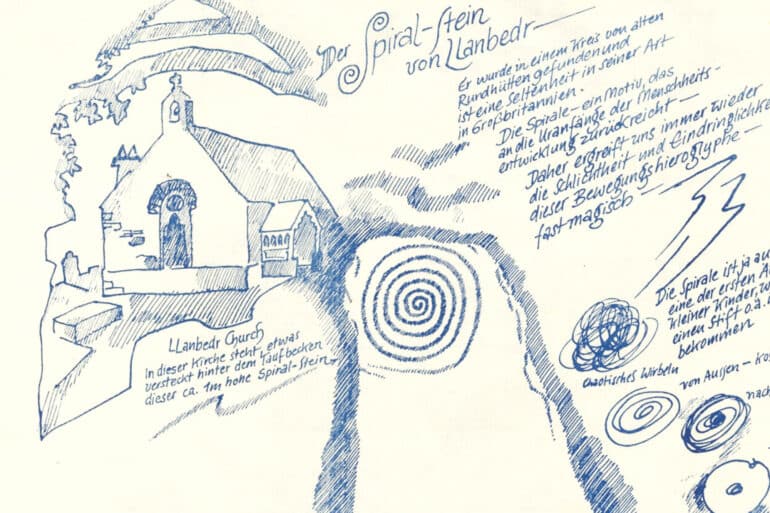 Der Spiral-Stein
von Llanbedr—
Er wurde in einem Kreis von alten
Rundhütten gefunden und
ist eine Seltenheit in seiner Art
in Großbritannien.
Die Spirale – ein Motiv, das
an die Uranfänge der Menschheits-
entwicklung zurückreicht —
Daher ergreift uns immer wieder
die Schlichtheit und Eindringlichke
dieser Bewegungshieroglyphe —
fast magisch —
Die Spirale ist ja au
eine der ersten A
kleiner Kinder, w
einen Stift o.ä.
bekommen
Llanbedr Church
In dieser Kirche steht, etwas
versteckt hinter dem Taufbecken
dieser ca. 1m hohe Spiral-Stein
Chaotisches Wirbeln
von Aussen – Ko
nach